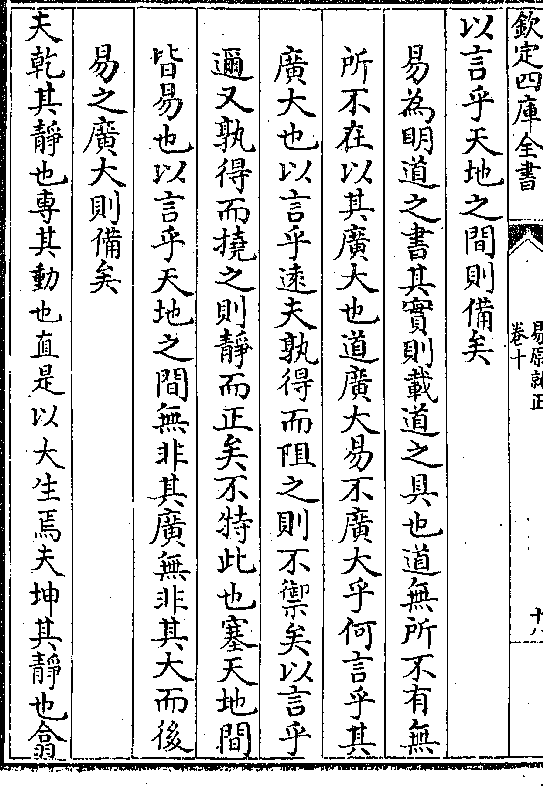 欽定四庫全書
卷十
十八
以言乎天地之間則備矣
易為明道之書其實則載道之具也道無所不有無
所不在以其廣大也道廣大易不廣大乎何言乎其
廣大也以言乎逺夫孰得而阻之則不禦矣以言乎
邇又孰得而撓之則靜而正矣不特此也塞天地間
皆易也以言乎天地之間無非其廣無非其大而後
易之廣大則備矣
夫乾其靜也專其動也直是以大生焉夫坤其靜也翕